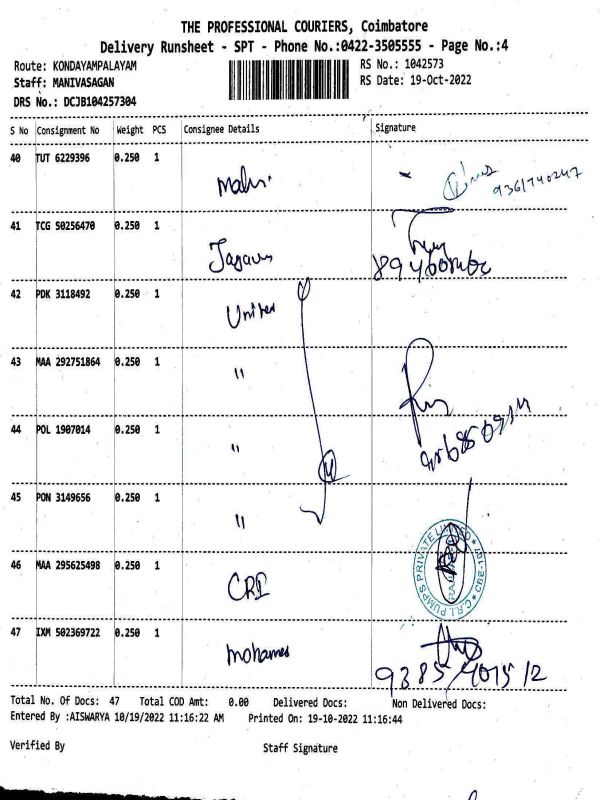 THE PROFESSIONAL COURIERS, Coimbatore
Delivery Runsheet - SPT - Phone No.:0422-3505555 - Page No.:4
Route: KONDAYAMPALAYAM
RS No.: 1042573
Staff: MANIVASAGAN
RS Date: 19-Oct-2022
DRS No.: DCJB104257304
S No Consignment No Weight PCS Consignee Details Signature
40 TUT 6229396 0.250 1
9361740247
41 TCG 50256470 0.250 1
42 PDK 3118492 0.250 1 United
43 MAA 292751864 0.250 1 "
44 POL 1907014 0.250 1 "
45 PON 3149656 0.250 1 "
46 MAA 295625498 0.250 1 CRI
C.R.I. PUMPS PRIVATE LIMITED
47 IXM 502369722 0.250 1 Mohamed
Total No. Of Docs: 47 Total COD Amt: 0.00 Delivered Docs: Non Delivered Docs:
Entered By :AISWARYA 10/19/2022 11:16:22 AM Printed On: 19-10-2022 11:16:44
Verified By Staff Signature